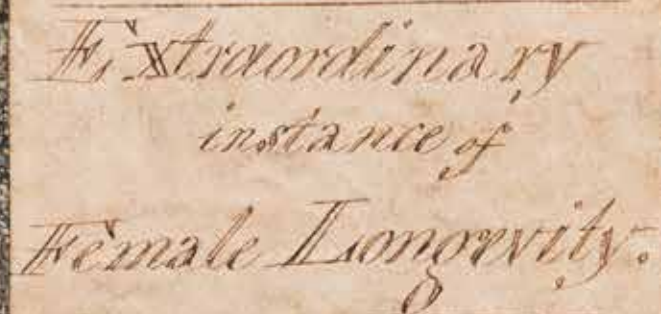 Extraordinary
instance of
Female Longevity.